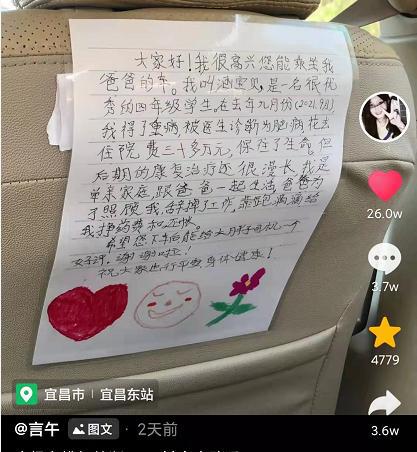 大家好!我很高兴您能乘坐我
爸爸的车。我叫涵宝贝,是一名很优
秀的四年级学生在去年九月份(2021.9月)
我得了重病被医生诊断为脑病花去
住院费三十多万元,保住了生命。但
后期的康复治疗还很漫长,我是
单亲家庭跟爸爸一起生活,爸爸为
了照顾我,辞掉工作,来跑滴滴给
我挣药费和
希望您下车后能给大胖司机一个
好评,谢谢啦!
祝大家出行平安身体健康!
26.0w
3.7w
4779
3.6w
宜昌市 | 宜昌东站
@言午 图文 · 2天前